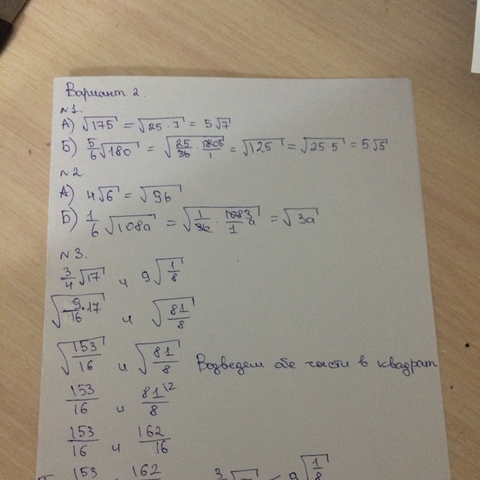 Вариант 2.
№1.
А) √175 = √25·7 = 5√7
Б) 5/6 √180 = √25/36 · 180/1 = √125 = √25·5 = 5√5
№2
А) 4√6 = √96
Б) 1/6 √108a = √1/36 · 108a/1 = √3a
№3.
3/4 √17 и 9√1/8
√9/16·17 и √81/8
√153/16 и √81/8 Возведем обе части в квадрат
153/16 и 81/8
153/16 и 162/16
153 162 < 9√1/8